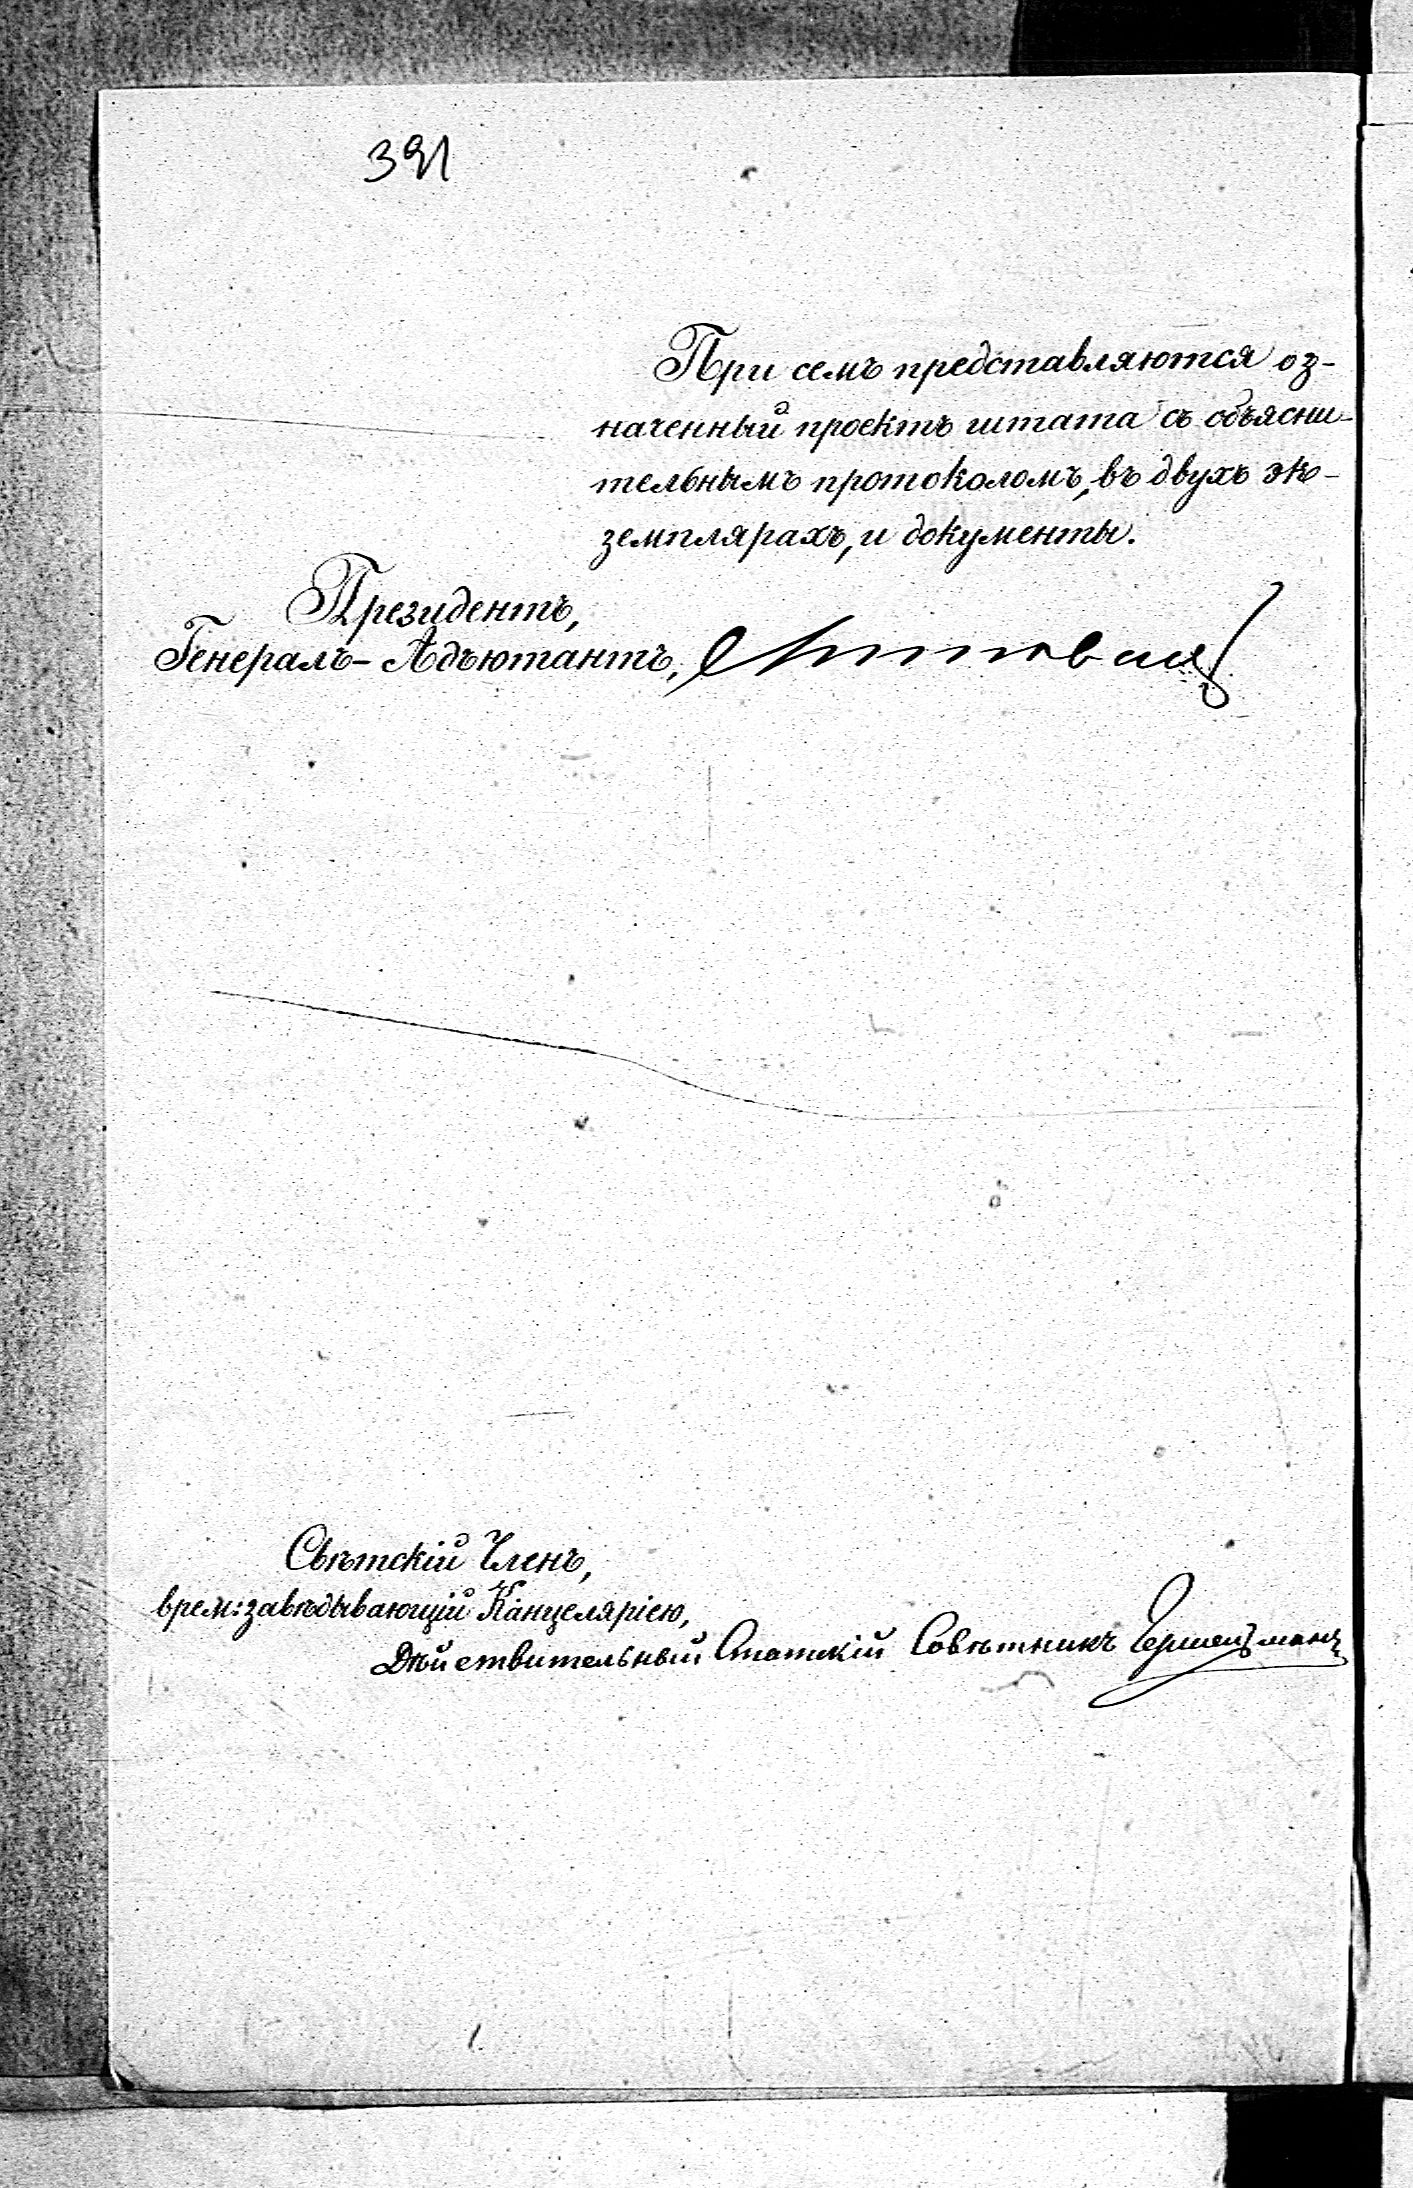 391
При семъ представляются оз-
наченный проектъ штата съ объясни-
тельнымъ протоколомъ, въ двухъ эк-
земплярахъ, и документы.
Президентъ,
Генералъ-Адъютантъ,
Свѣтскій Членъ,
врем: завѣдывающій Канцеляріею,
Дѣйствительный Статскій Совѣтникъ